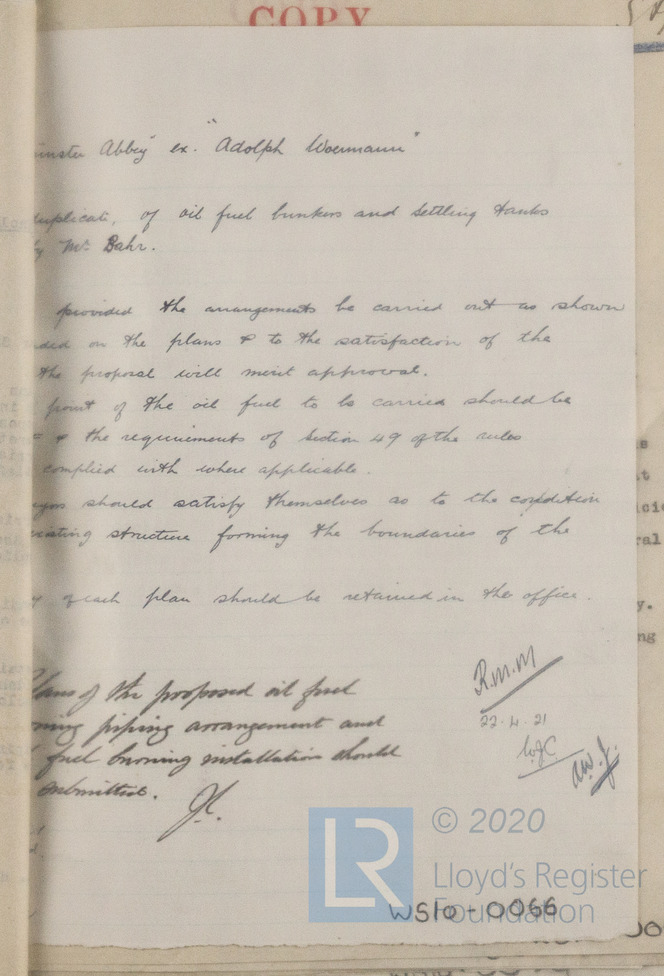 COPY
minster Abbey" ex. "Adolph Woermann"
duplicate, of oil fuel bunkers and settling tanks
by Mr. Bahr.
provided the arrangements be carried out as shown
on the plans & to the satisfaction of the
the proposal will merit approval.
point of the oil fuel to be carried should be
& the requirements of Section 49 of the rules
complied with where applicable.
should satisfy themselves as to the condition
existing structure forming the boundaries of the
of each plan should be retained in the office.
Plans of the proposed oil fuel
piping arrangement and
fuel burning installation should
submitted.
R.M.M
22.4.21
© 2020
LR
Lloyd's Register
Foundation
WS10-0066